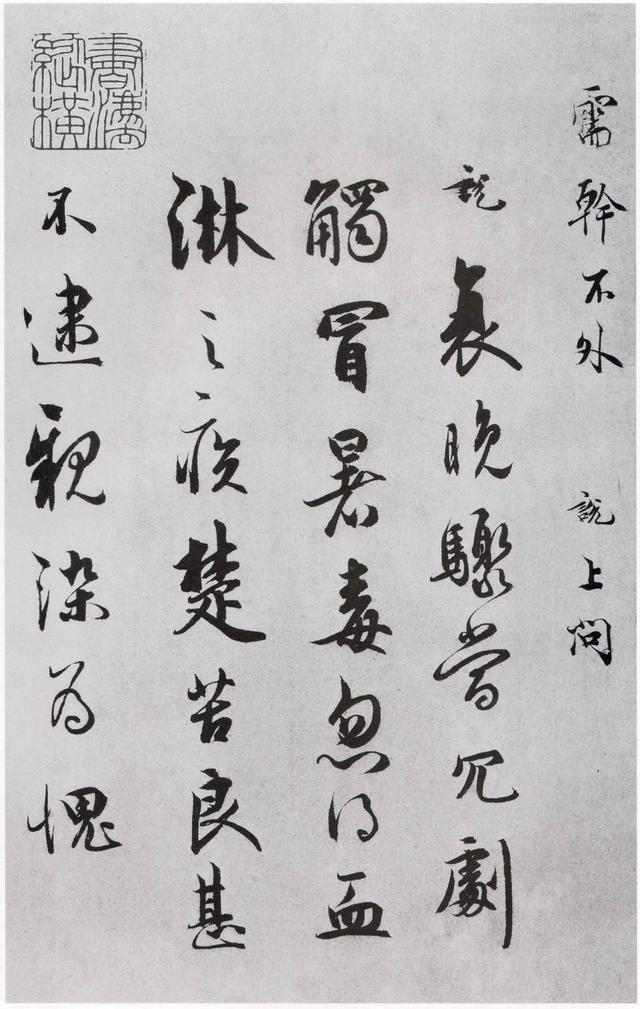 需幹不外　說上問
說衰晚驟當冗劇
觸冒暑毒忽得血
淋之疾楚苦良甚
不逮親染為愧